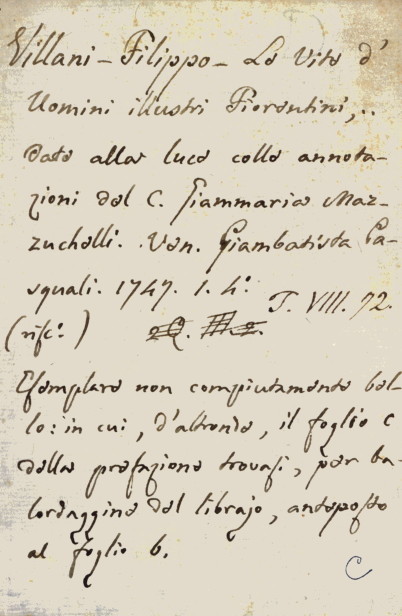 Villani - Filippo - Le Vite d'
Uomini illustri Fiorentini, ..
date alla luce colle annota-
zioni del C. Giammaria Maz-
zuchelli. Ven. Giambatista Pa-
squali. 1747. 1. 4.°
T. VIII. 72.
(risc.° )
Esemplare non compiutamente bel-
lo: in cui, d'altronde, il foglio c
della prefazione trovasi, per ba-
lordaggine del librajo, anteposto
al foglio b.
C